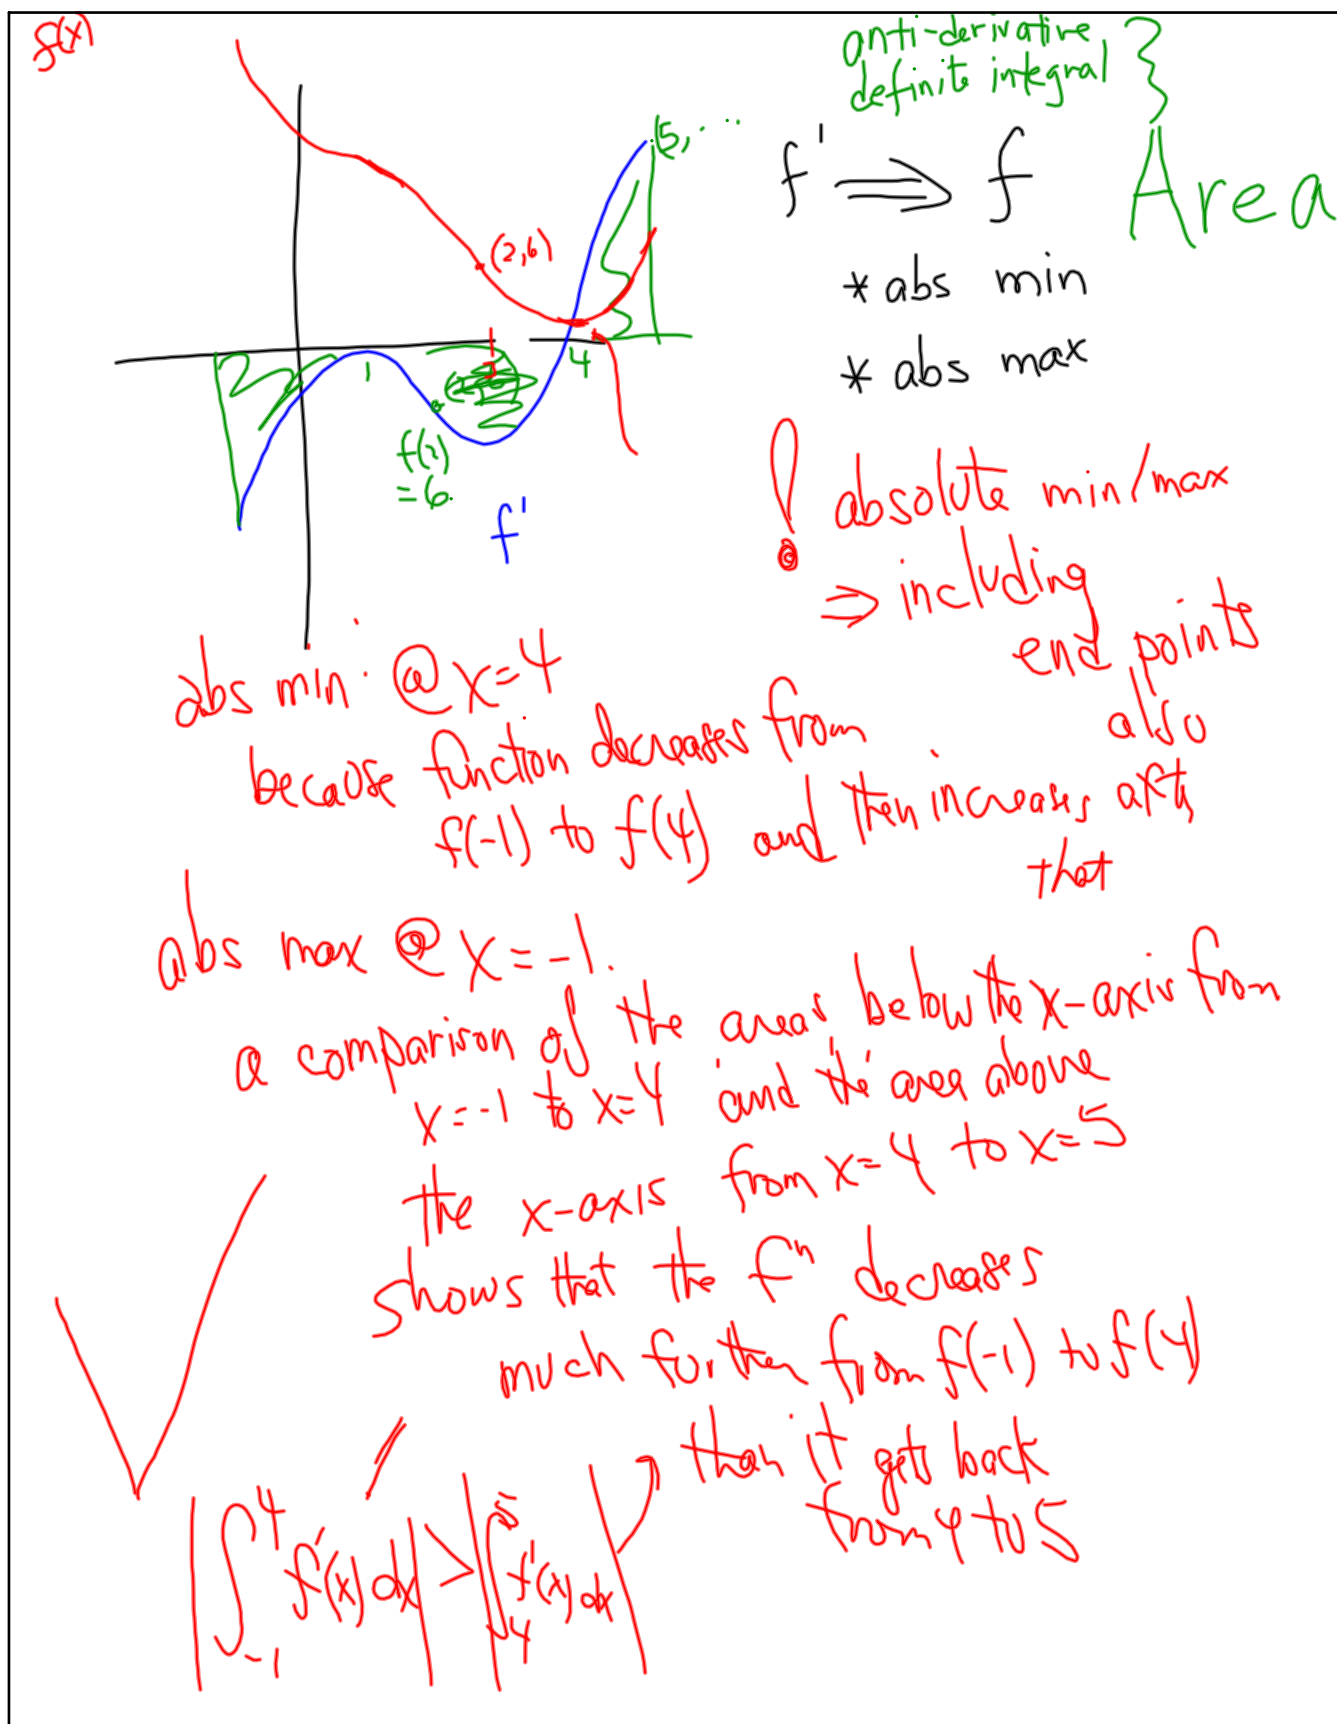 f(x)
anti-derivative
definite integral
Area
(5, ...
f' ⇒ f
(2,6)
* abs min
1
4
* abs max
f(2)
= 6.
f'
! absolute min/max
⇒ including
end points
also
abs min @ x=4
because function decreases from
f(-1) to f(4) and then increases after
that
abs max @ x=-1.
a comparison of the areas below the x-axis from
x=-1 to x=4 and the area above
the x-axis from x=4 to x=5
shows that the fⁿ decreases
much further from f(-1) to f(4)
than it gets back
from 4 to 5
|∫₋₁⁴ f'(x) dx| > |∫₄⁵ f'(x) dx|